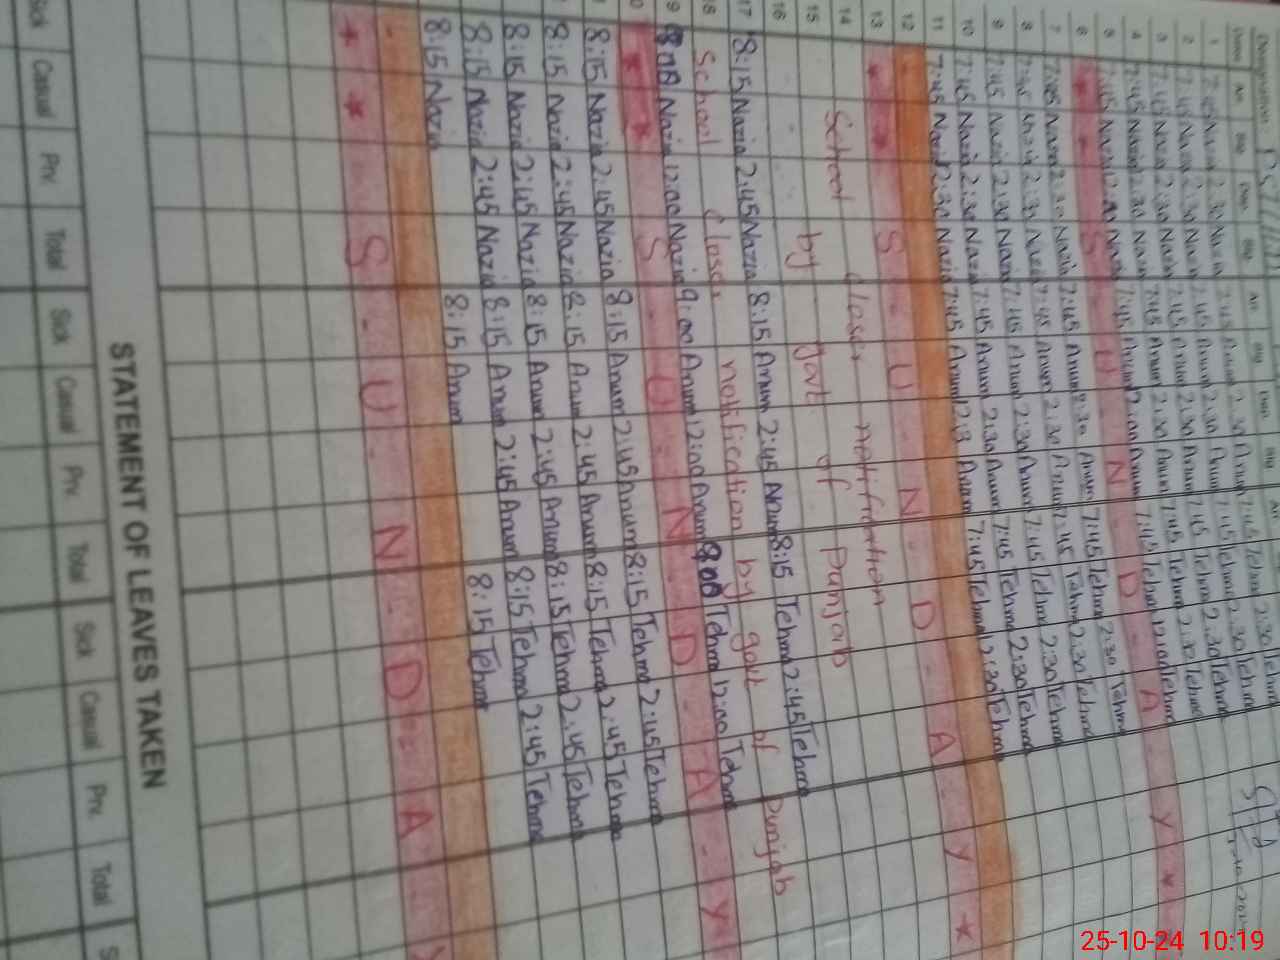 Designation:
Date Arr. Sig. Dep. Sig. Arr. Sig. Dep. Sig.
1 7:45 Nazia 2:30 Nazia 7:45 Anum 2:30 Anum 7:45 Tehma 2:30 Tehma
2 7:45 Nazia 2:30 Nazia 7:45 Anum 2:30 Anum 7:45 Tehma 2:30 Tehma
3 7:45 Nazia 2:30 Nazia 7:45 Anum 2:30 Anum 7:45 Tehma 2:30 Tehma
4 7:45 Nazia 2:30 Nazia 7:45 Anum 2:30 Anum 7:45 Tehma 2:30 Tehma
5 7:45 Nazia 12:00 Nazia 7:45 Anum 12:00 Anum 7:45 Tehma 12:00 Tehma
6 * * S U N D A Y *
7 7:45 Nazia 2:30 Nazia 7:45 Anum 2:30 Anum 7:45 Tehma 2:30 Tehma
8 7:45 Nazia 2:30 Nazia 7:45 Anum 2:30 Anum 7:45 Tehma 2:30 Tehma
9 7:45 Nazia 2:30 Nazia 7:45 Anum 2:30 Anum 7:45 Tehma 2:30 Tehma
10 7:45 Nazia 2:30 Nazia 7:45 Anum 2:30 Anum 7:45 Tehma 2:30 Tehma
11 7:45 Nazia 2:30 Nazia 7:45 Anum 2:3 Anum 7:45 Tehma 2:30 Tehma
12
13 * * S U N D A Y *
14 School closer notification
15 by govt. of Punjab
16
17 8:15 Nazia 2:45 Nazia 8:15 Anum 2:45 Anum 8:15 Tehma 2:45 Tehma
18 School closer notification by govt of Punjab
19 8:00 Nazia 12:00 Nazia 9:00 Anum 12:00 Anum 8:00 Tehma 12:00 Tehma
* * S U N D A Y
8:15 Nazia 2:45 Nazia 8:15 Anum 2:45 Anum 8:15 Tehma 2:45 Tehma
8:15 Nazia 2:45 Nazia 8:15 Anum 2:45 Anum 8:15 Tehma 2:45 Tehma
8:15 Nazia 2:45 Nazia 8:15 Anum 2:45 Anum 8:15 Tehma 2:45 Tehma
8:15 Nazia 2:45 Nazia 8:15 Anum 2:45 Anum 8:15 Tehma 2:45 Tehma
8:15 Nazia 8:15 Anum 8:15 Tehma
* * S U N D A Y
STATEMENT OF LEAVES TAKEN
Sick Casual Prv. Total Sick Casual Prv. Total Sick Casual Prv. Total S
25-10-24 10:19